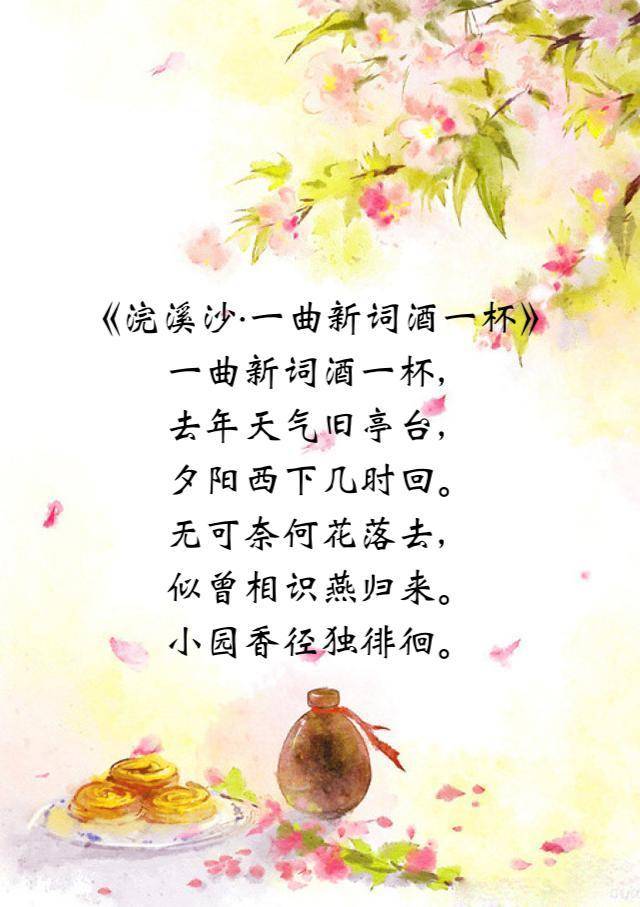 《浣溪沙·一曲新词酒一杯》
一曲新词酒一杯，
去年天气旧亭台，
夕阳西下几时回。
无可奈何花落去，
似曾相识燕归来。
小园香径独徘徊。